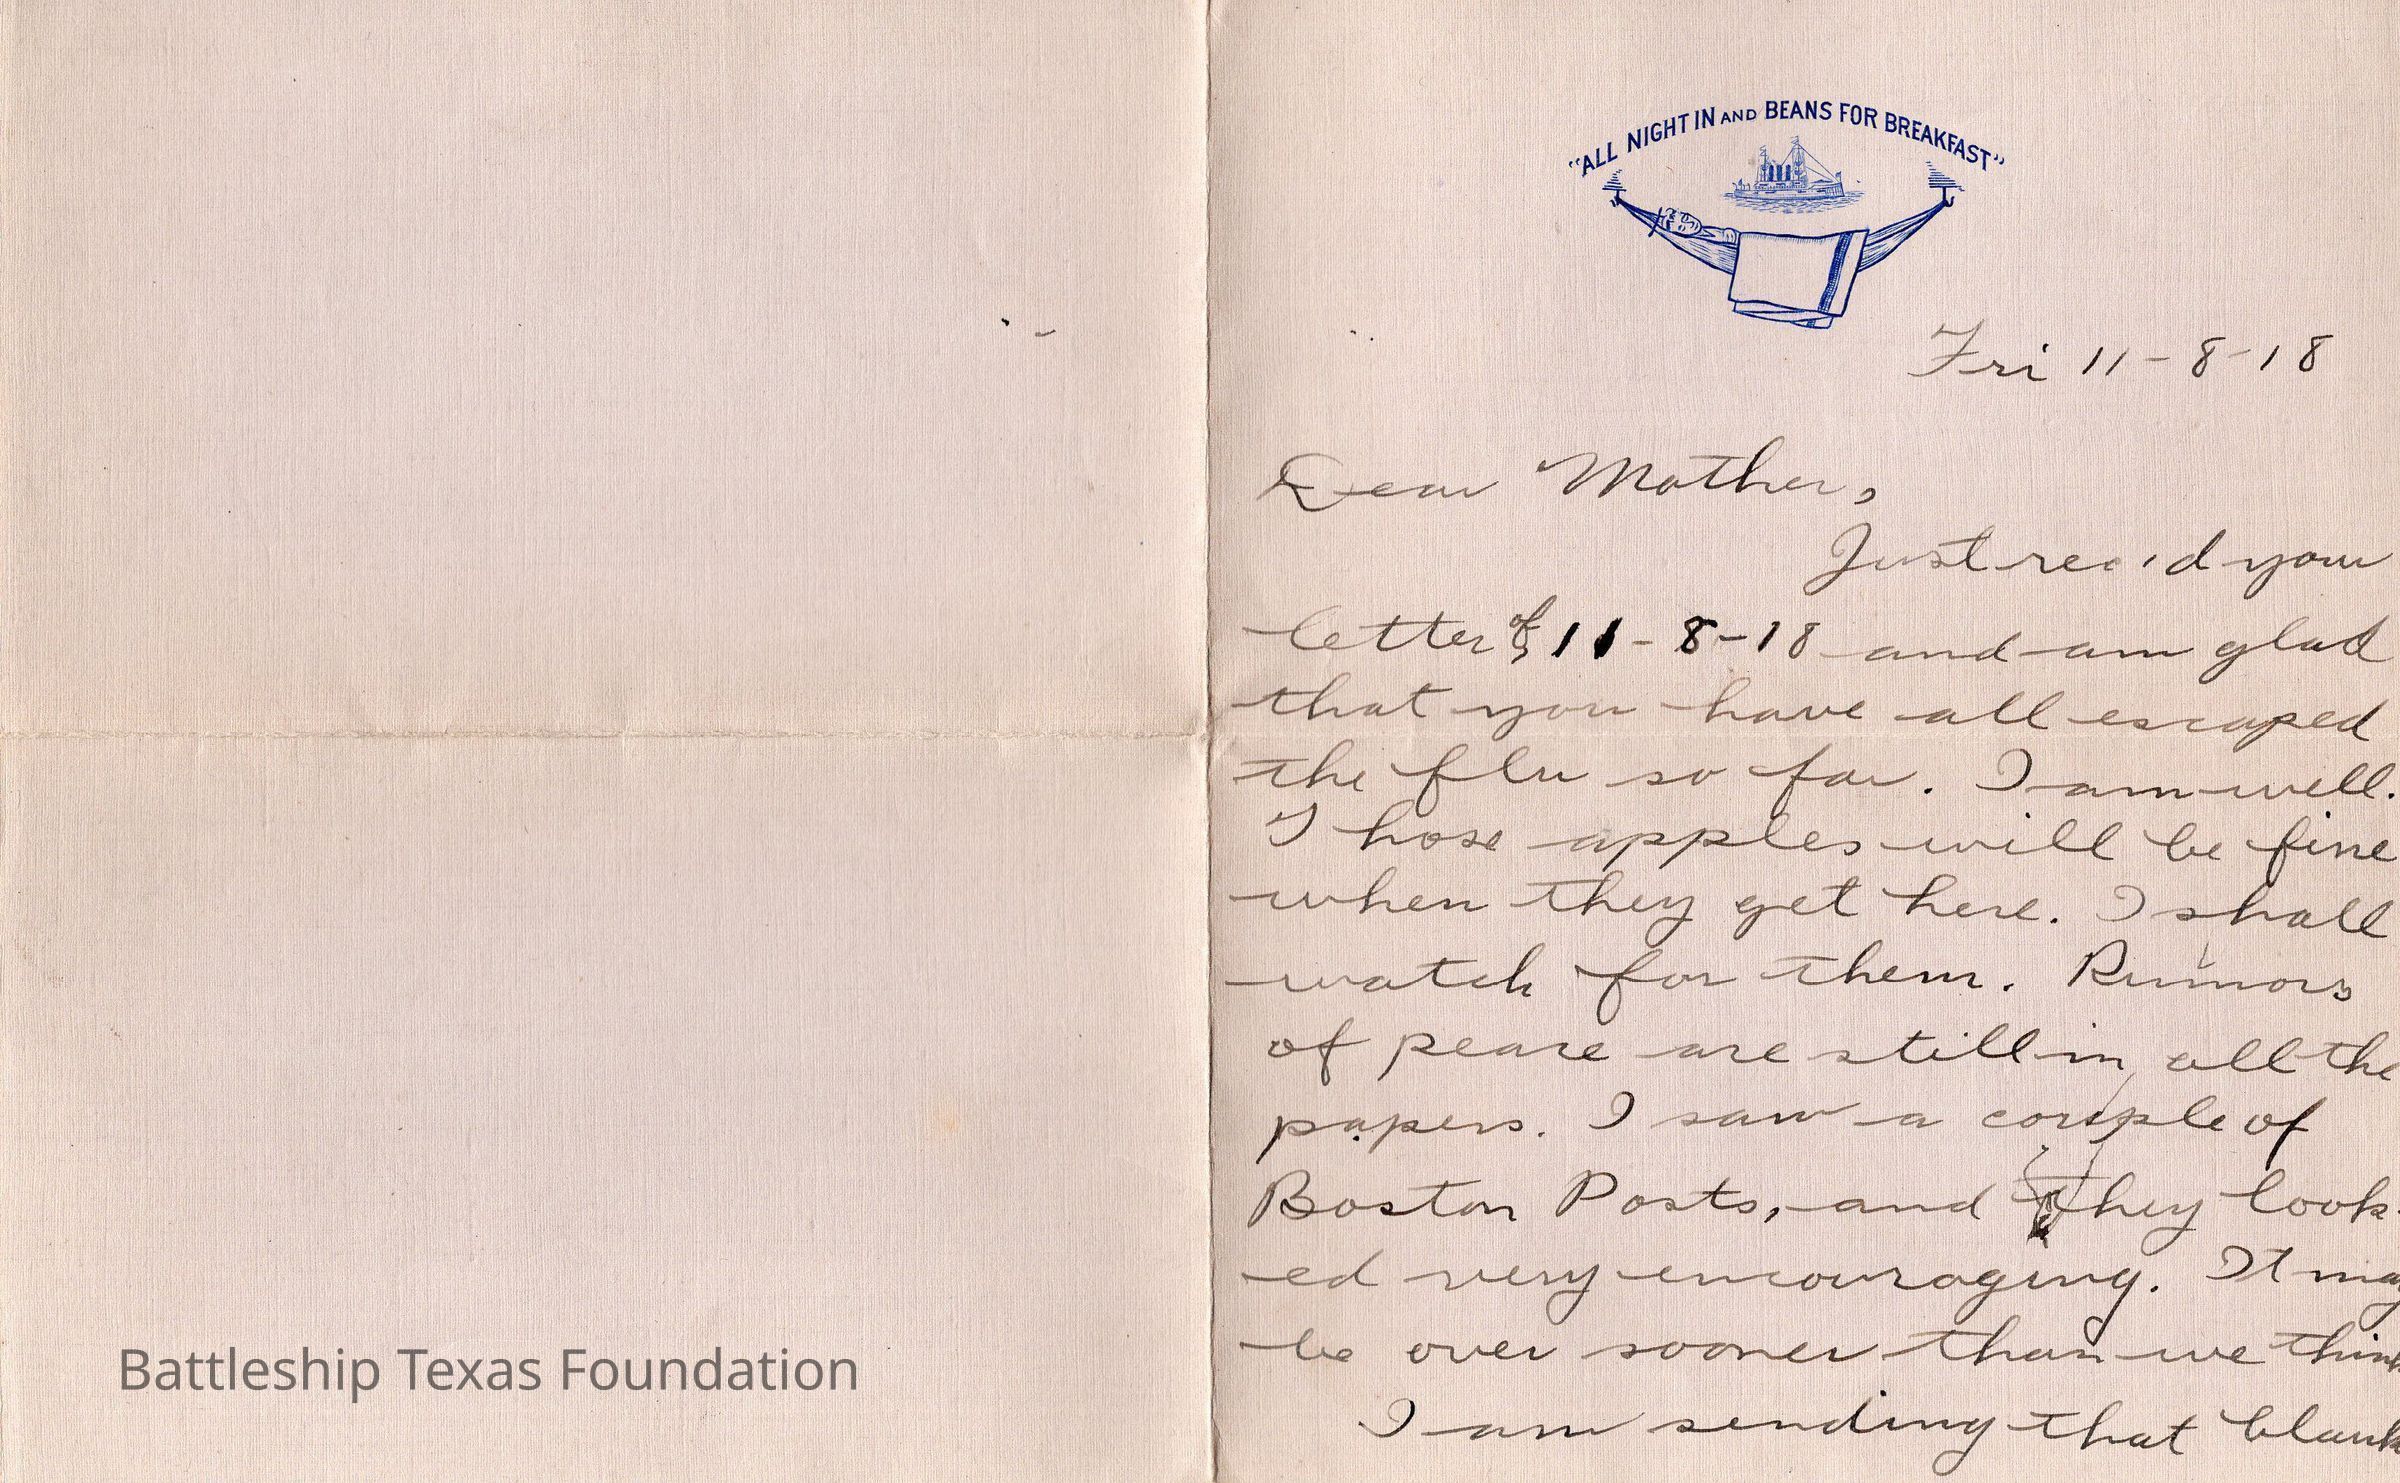 "ALL NIGHT IN AND BEANS FOR BREAKFAST"
Fri 11-8-18
Dear Mother,
Just rec'd your
letter of 11-8-18 and am glad
that you have all escaped
the flu so far. I am well.
Those apples will be fine
when they get here. I shall
watch for them. Rumors
of peace are still in all the
papers. I saw a couple of
Boston Posts, and they look-
ed very encouraging. It may
be over sooner than we think
I am sending that blank
Battleship Texas Foundation